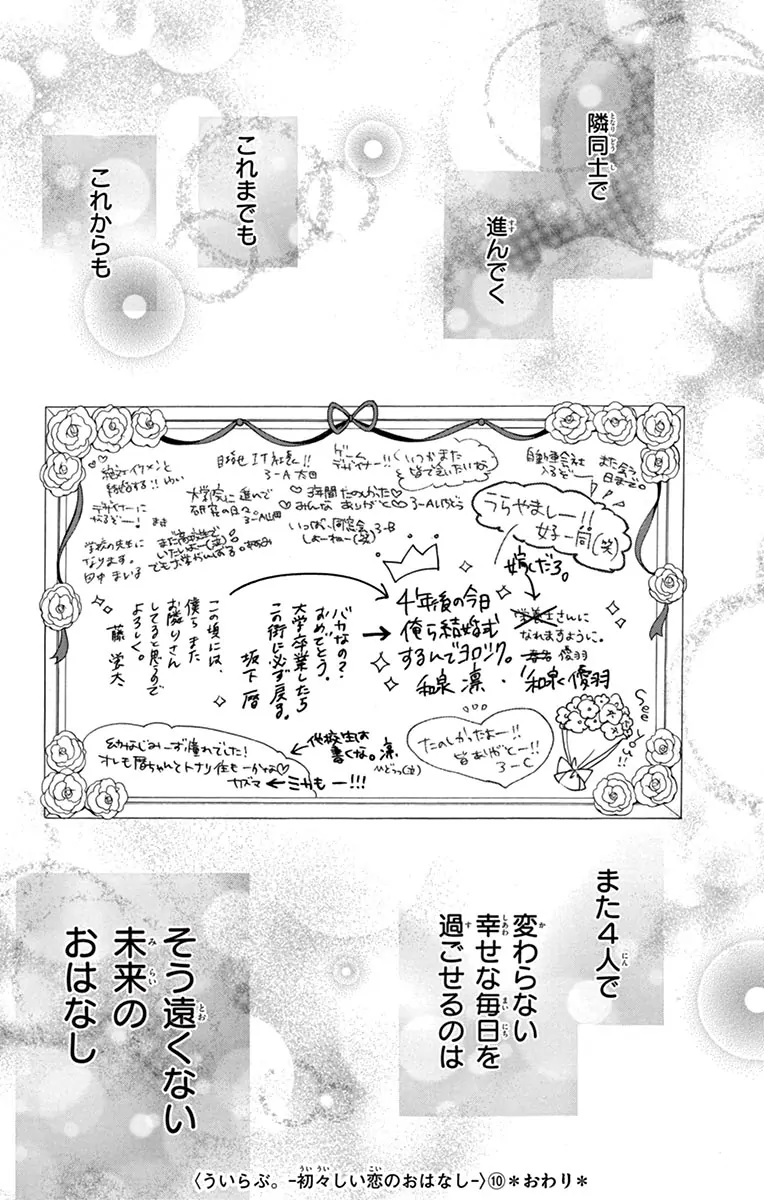 隣同士で
進んでく
これまでも
これからも
自動車会社
入るぞ
また会う
日まで。
いつかまた
皆で会いたいね
ゲーム
デザイナー!!
目指せIT社長!!
3-A 太田
絶対イケメンと
結婚する!!
デザイナーに
なるぞー!
大学院に進んで
研究の日々。
3年間たのかった♡
♡みんな ありがと♡
いっぱい同窓会
しよーねー(笑)
3-B
学校の先生に
なります。
田中 まいる
うらやましー!!
女子一同(笑)
嫁しだろ。
栄養士さんに
なれますように。
優羽
和泉 優羽
4年後の今日
俺ら結婚式
するんでヨロシク。
和泉 凛
バカなの?
おめでとう。
大学卒業したら
この街に必ず戻る。
坂下 暦
この頃には、
僕らまた
お隣りさん
してると思うので
よろしく。
藤 蛍太
See you!!
たのしかったよー!!
皆ありがとー!!
3-C
←他校生は
書くな。凛
ひどっっ(泣)
幼なじみーず憧れでした!
オレも暦ちゃんとトナリ住もーかな♡
カズマ
←ミカもー!!!
また4人で
変わらない
幸せな毎日を
過ごせるのは
そう遠くない
未来の
おはなし
〈ういらぶ。-初々しい恋のおはなし-〉⑩＊おわり＊